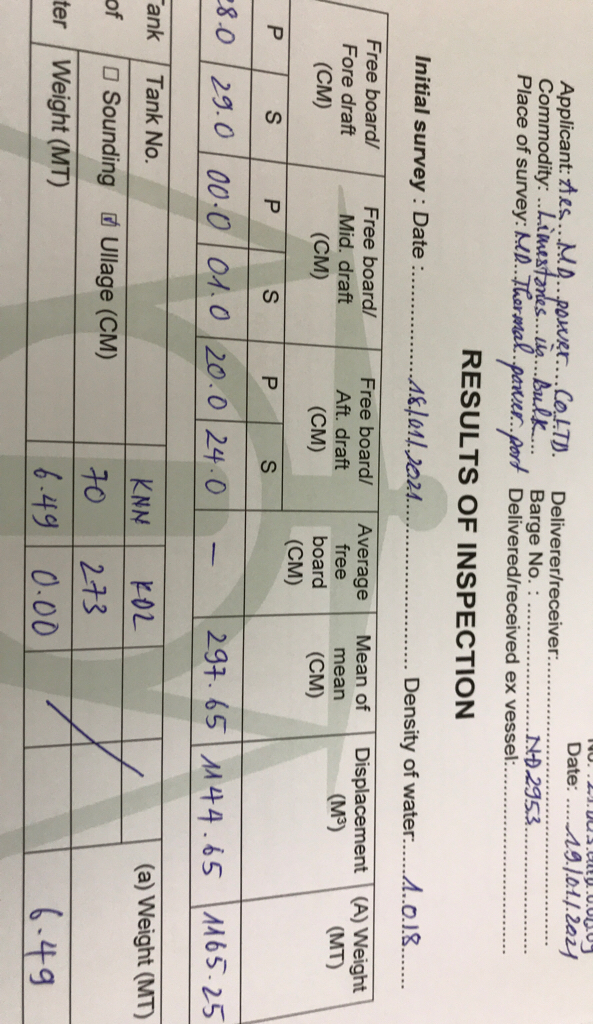 Date: .....19/01/2021
Applicant: Aes...MD...power....Co.LTD. Deliverer/receiver:
Commodity: ...Limestones...in...bulk.... Barge No. : ................ND2953
Place of survey: MD...Thermal...power...port Delivered/received ex vessel:
RESULTS OF INSPECTION
Initial survey : Date : ................18/01/2021................ Density of water:.....1.018......
Free board/ Fore draft (CM) Free board/ Mid. draft (CM) Free board/ Aft. draft (CM) Average free board (CM) Mean of mean (CM) Displacement (M³) (A) Weight (MT)
P S P S P S
28.0 29.0 00.0 01.0 20.0 24.0 – 297.65 1144.65 1165.25
Tank Tank No. KNN KD2 (a) Weight (MT)
of ☐ Sounding ☑ Ullage (CM) 70 273
ter Weight (MT) 6.49 0.00 6.49